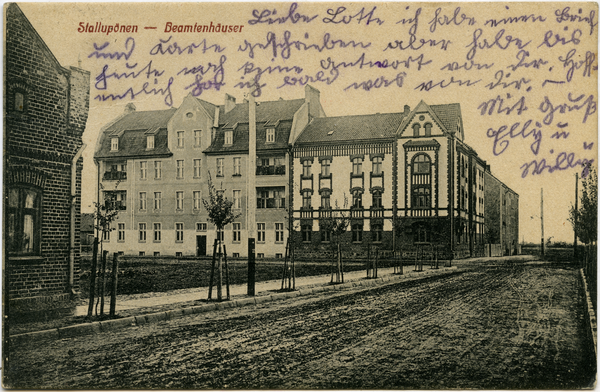 Stallupönen — Beamtenhäuser
Liebe Lotte ich habe einen Brief
und Karte geschrieben aber habe bis
heute noch keine antwort von dir. Hoff-
entlich hör ich bald was von dir. –
Mit Gruß
Elly u
Willy